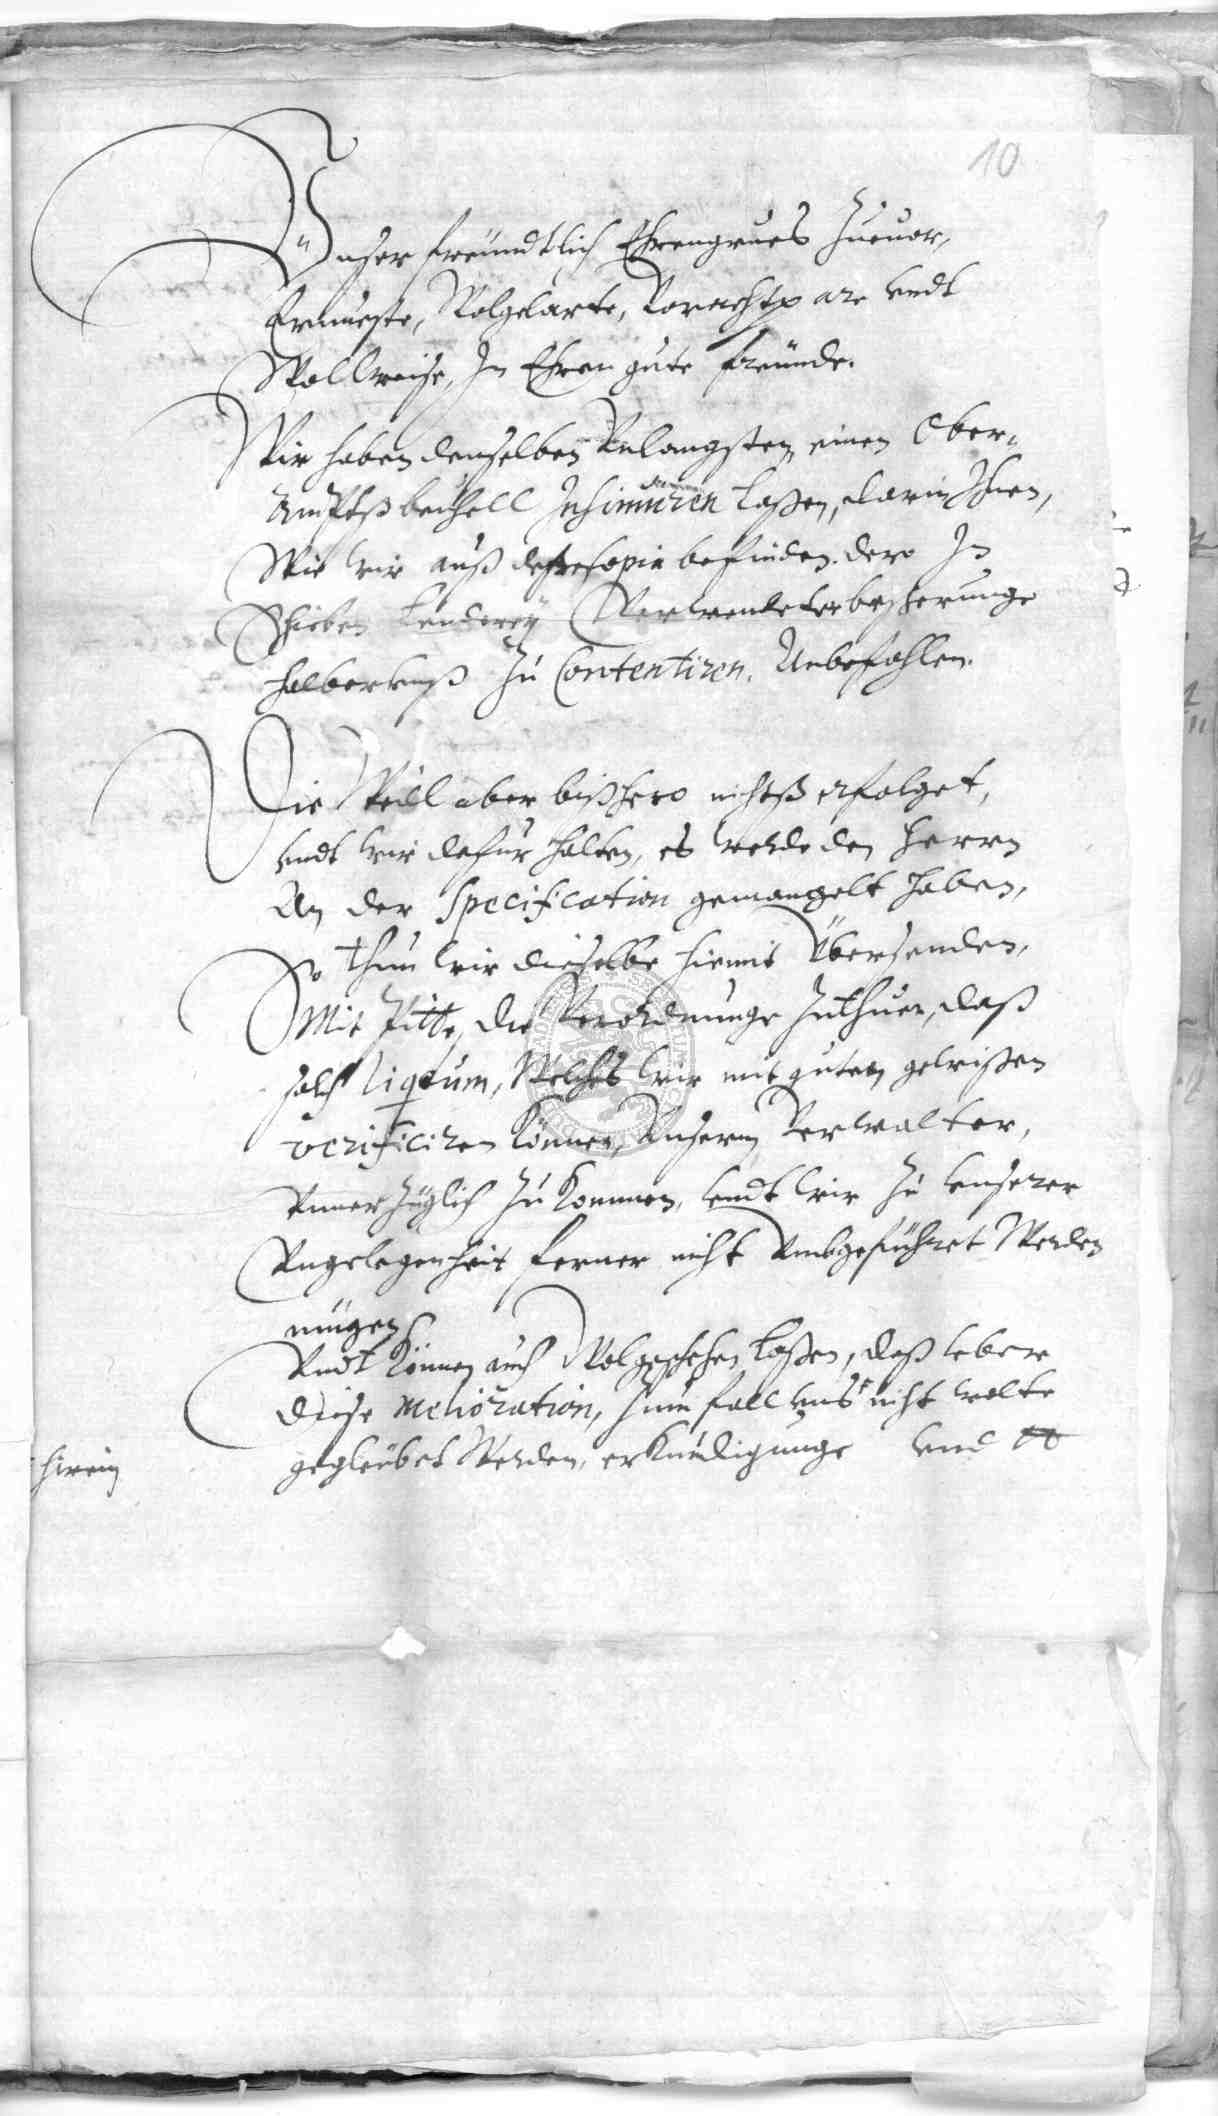 10
Unser freundtlich Ehrengrues Zuuor,
Ernueste, Wolgelarte, Vorachtpare undt
Wollweise, In Ehren gute freunde.
Wir haben denselben Vnlangsten einen Ober,
Amptsbeuhell Insinuiren laßen, darin Ihnen,
Wie wir auß deßen Copia befinden. dero In
Schieben Lenderey Verwendeter beßerunge
halber vnß Zu Contentiren. Anbefohlen.
Die Weill aber bißhero nichts erfolget,
vndt wir dafür halten, es werde den Herrn
An der Specification gemangelt haben,
So thun wir dieselbe hiemit Übersenden,
Mit Pitte, die Verordnunge Zuthuen, daß
solch liquidum, Welches wir mit guten gewißen
verificiren Können, Unserm Verwalter,
Vnuerzüglich Zu Kommen, vndt wir Zu vnserer
Vngelegenheit ferner nicht Vmbgeführet Werden
mügen
Vndt Können auch Wolgeschehen laßen, daß vber
Diese melioration, Zum fall vnß nicht wolte
gegleubet Werden, erKundigunge vnd
hirein